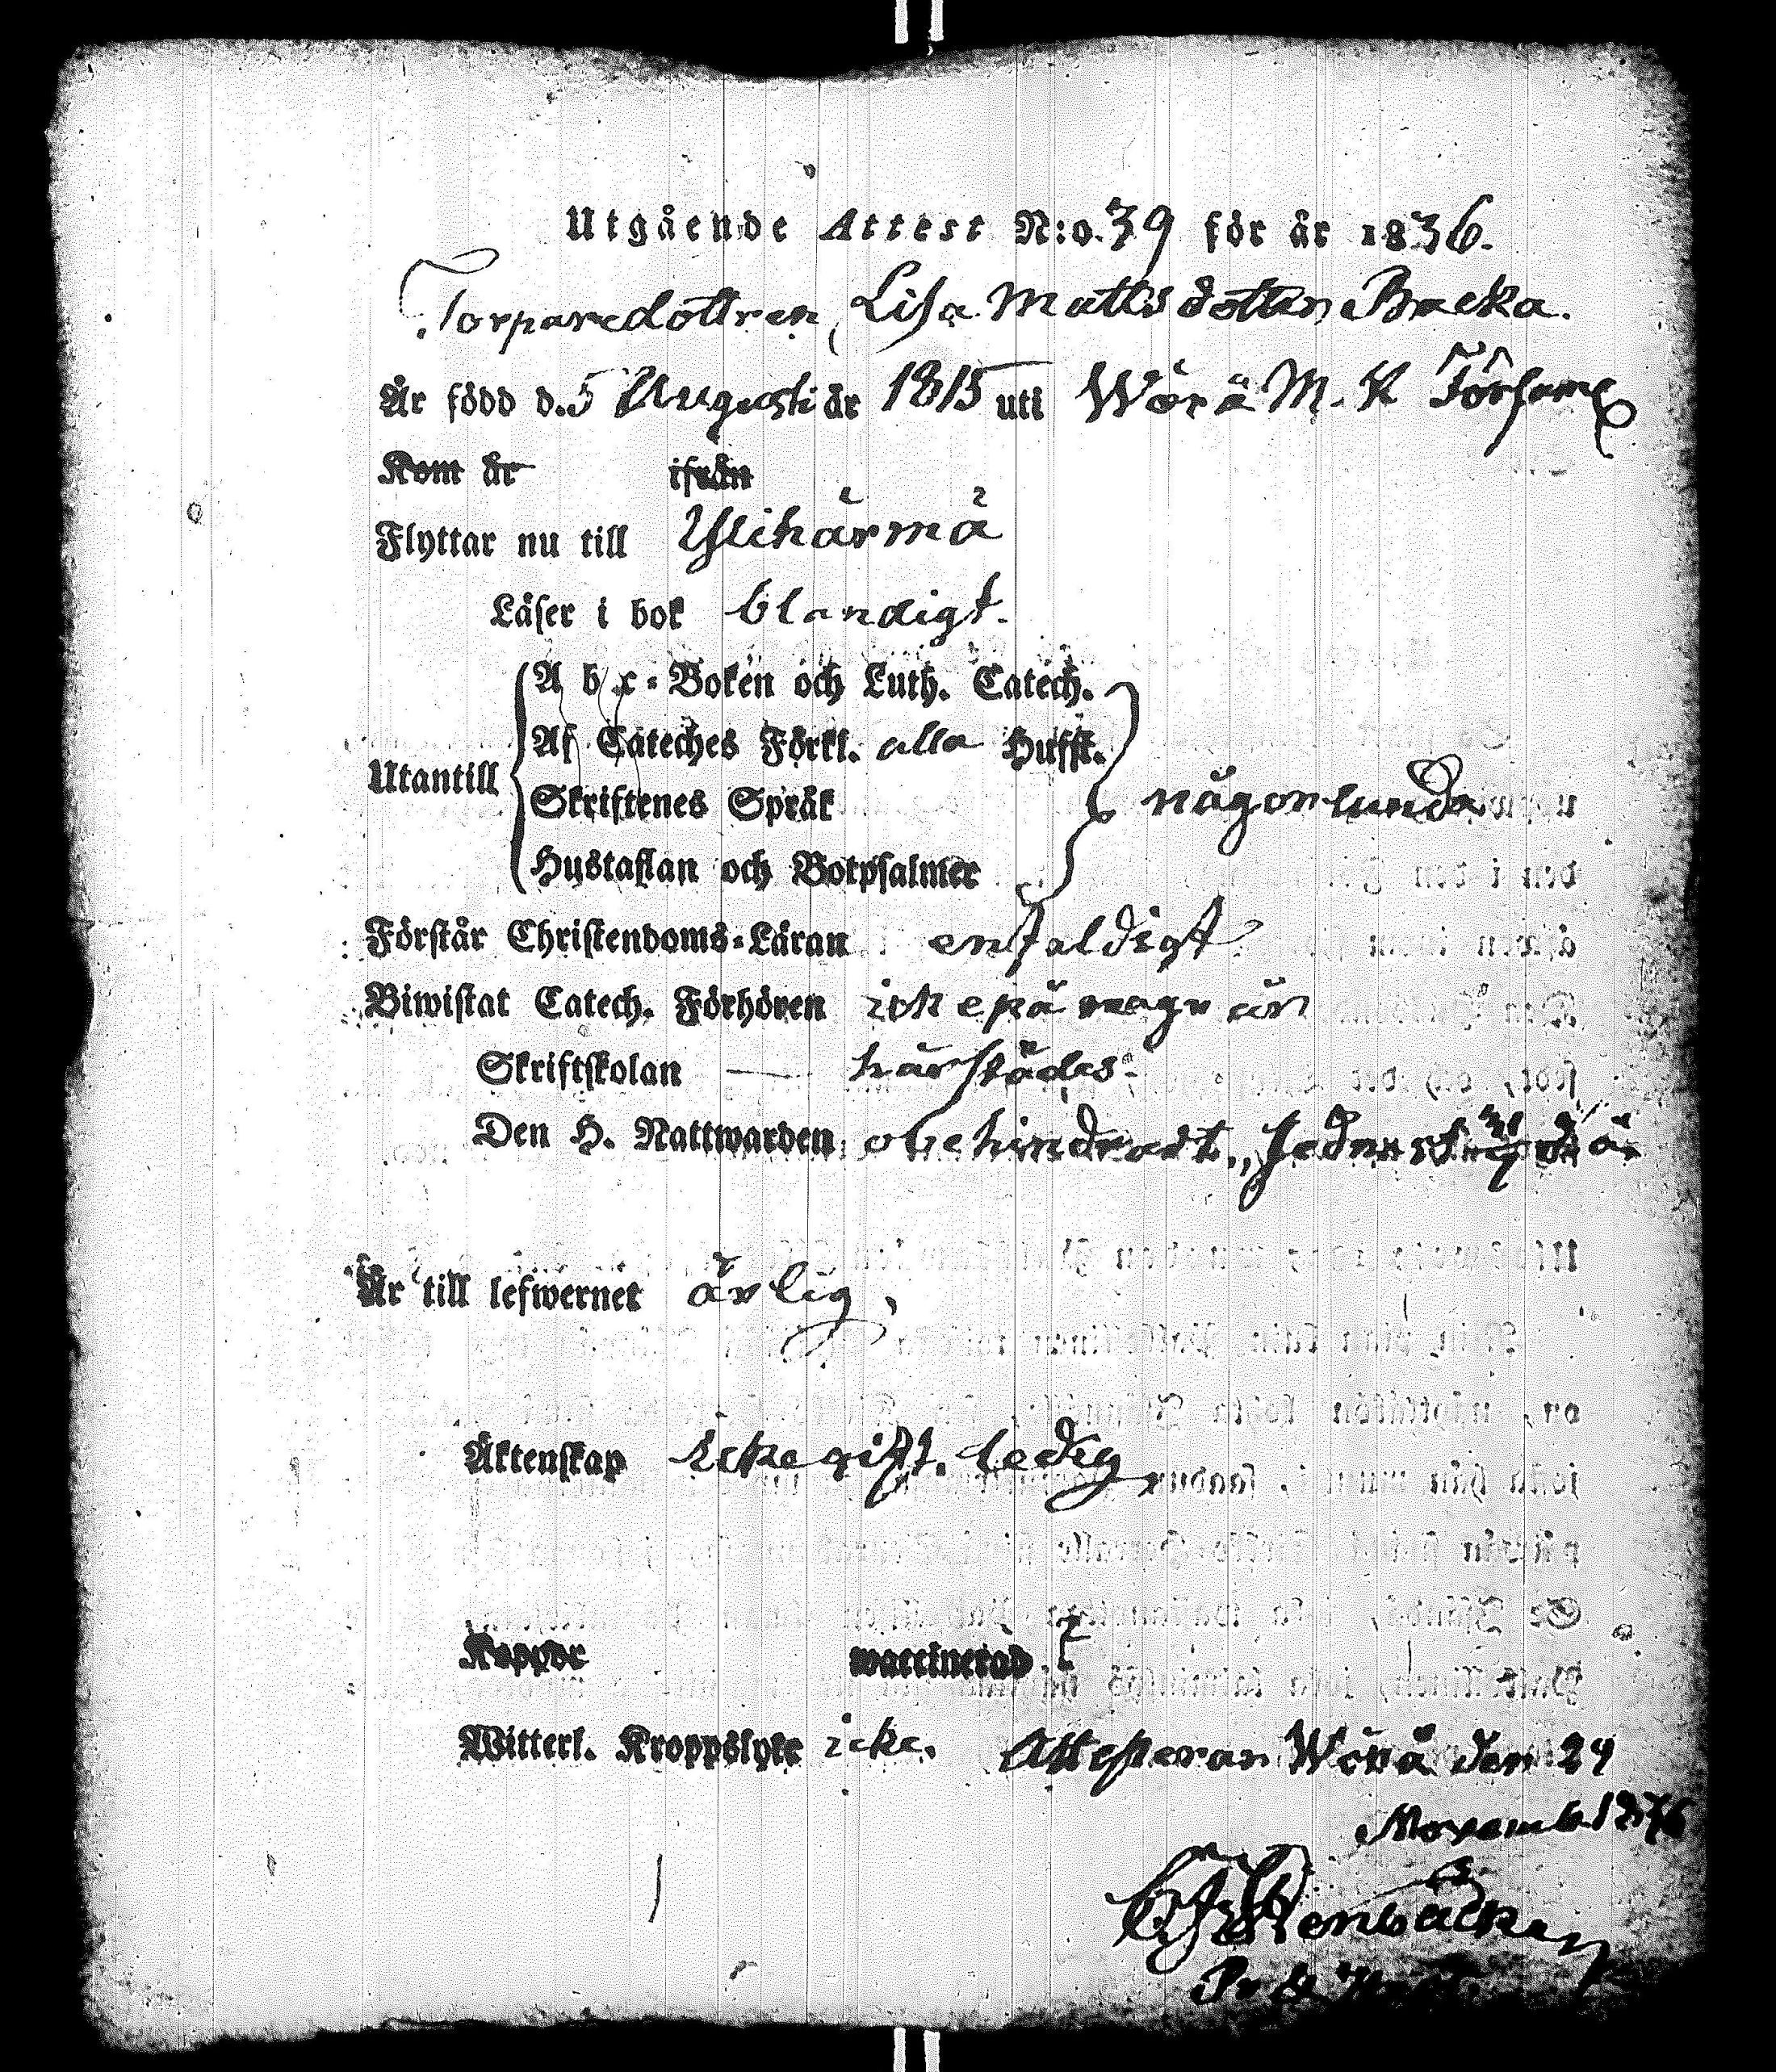 Utgående Attest N:o. 39 för år 1836.
Torparedottren Lisa Mattsdotter Backa.
Är född d. 5 Augusti år 1815 uti Wörå M. K Församl
Kom år ifrån
Flyttar nu till Ylihärmä
Läser i bok blandigt.
Utantill
A b c-Boken och Luth. Catech.
Af Cateches Förkl. alla Hufst.
Skriftenes Språk
någorlunda
Hustaflan och Botpsalmer
Förstår Christendoms-Läran enfaldigt
Biwistat Catech. Förhören icke på några år
Skriftskolan — härstädes.
Den H. Nattwarden obehindradt., sednast
Är till lefwernet ärlig,
Äktenskap Icke gift. ledig
Koppor waccinerad
Witterl. Kroppslyte icke. Attesteras Wörå den 24
Novemb. 1836
Stenbäck